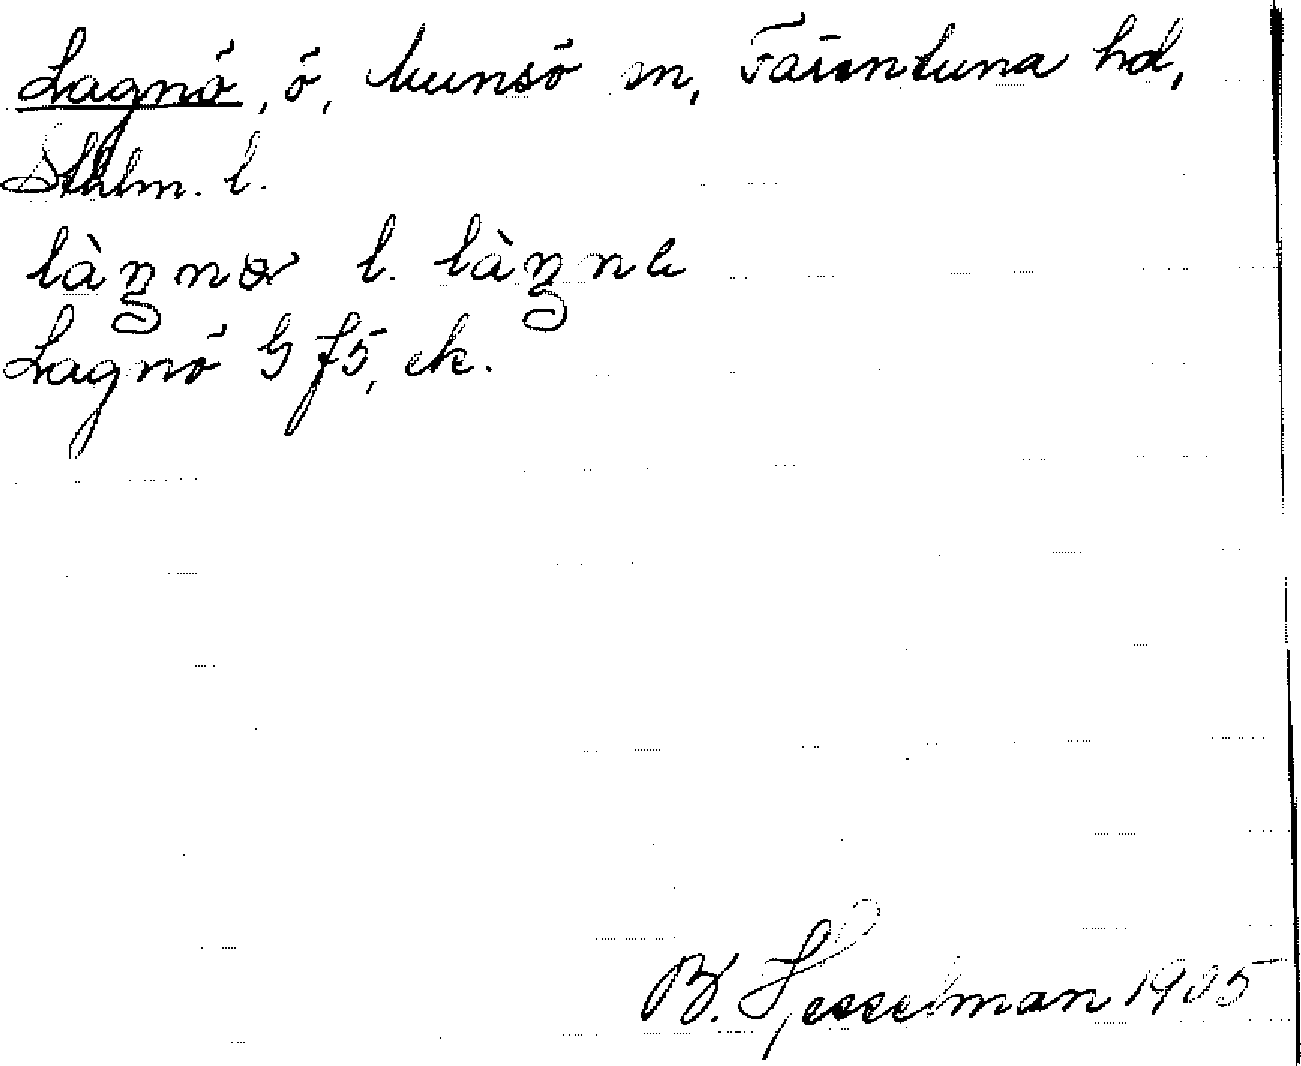 Lagnö, ö, Munsö sn, Färentuna hd,
Sthlm. l.
làŋnø l. làŋna
Lagnö G f5, ek.
B. Hesselman 1905